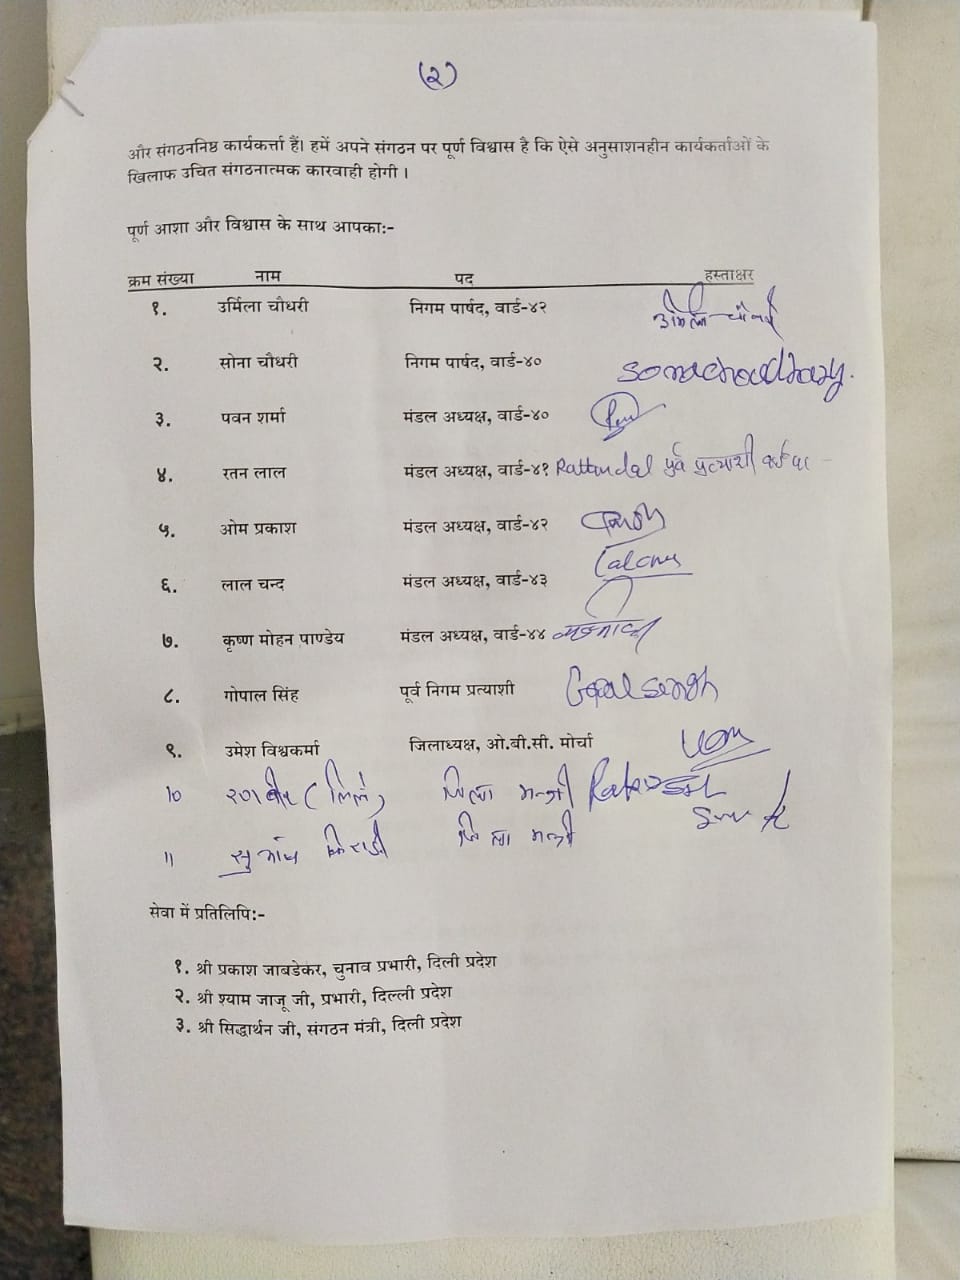 (२)
और संगठननिष्ठ कार्यकर्त्ता हैं। हमें अपने संगठन पर पूर्ण विश्वास है कि ऐसे अनुसाशनहीन कार्यकर्ताओं के
खिलाफ उचित संगठनात्मक कारवाही होगी ।
पूर्ण आशा और विश्वास के साथ आपका:-
क्रम संख्या नाम पद हस्ताक्षर
१. उर्मिला चौधरी निगम पार्षद, वार्ड-४२
२. सोना चौधरी निगम पार्षद, वार्ड-४० sonachoudhary.
३. पवन शर्मा मंडल अध्यक्ष, वार्ड-४०
४. रतन लाल मंडल अध्यक्ष, वार्ड-४१ Rattan Lal पुर्व प्रत्याशी
५. ओम प्रकाश मंडल अध्यक्ष, वार्ड-४२
६. लाल चन्द मंडल अध्यक्ष, वार्ड-४३
७. कृष्ण मोहन पाण्डेय मंडल अध्यक्ष, वार्ड-४४
८. गोपाल सिंह पूर्व निगम प्रत्याशी Gopal singh
९. उमेश विश्वकर्मा जिलाध्यक्ष, ओ.बी.सी. मोर्चा
10 जिला मन्त्री
11 जिला मन्त्री
सेवा में प्रतिलिपि:-
१. श्री प्रकाश जाबडेकर, चुनाव प्रभारी, दिली प्रदेश
२. श्री श्याम जाजू जी, प्रभारी, दिल्ली प्रदेश
३. श्री सिद्धार्थन जी, संगठन मंत्री, दिली प्रदेश